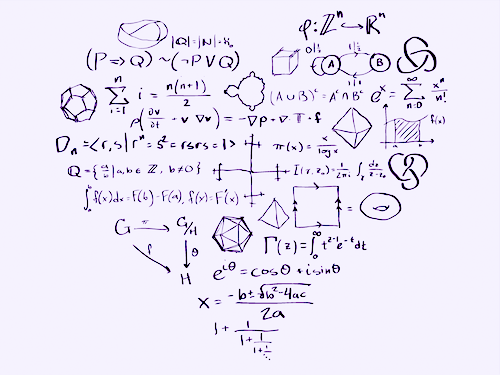 |ℚ|=|ℕ|=ℵ₀
φ: ℤⁿ ↪ ℝⁿ
(P ⇒ Q) ~ (¬P ∨ Q)
0|1 A 1|1 B 1|1
∑_{i=1}^{n} i = n(n+1)/2
(A ∪ B)ᶜ = Aᶜ ∩ Bᶜ
eˣ = ∑_{n=0}^{∞} xⁿ/n!
ρ(∂v/∂t + v · ∇v) = -∇p + ∇ · T + f
f(x)
Dₙ = <r, s | rⁿ = s² = rsrs = 1>
π(x) ~ x/log x
ℚ = {a/b | a, b ∈ ℤ, b≠0}
∫_a^b f(x)dx = F(b) - F(a), f(x) = F'(x)
G → G/H
f
θ
H
Γ(z) = ∫_0^∞ t^{z-1} e^{-t} dt
e^{iθ} = cosθ + isinθ
x = (-b ± √(b²-4ac))/2a
1 + 1/(1 + 1/(1 + 1/(1 + ⋱)))